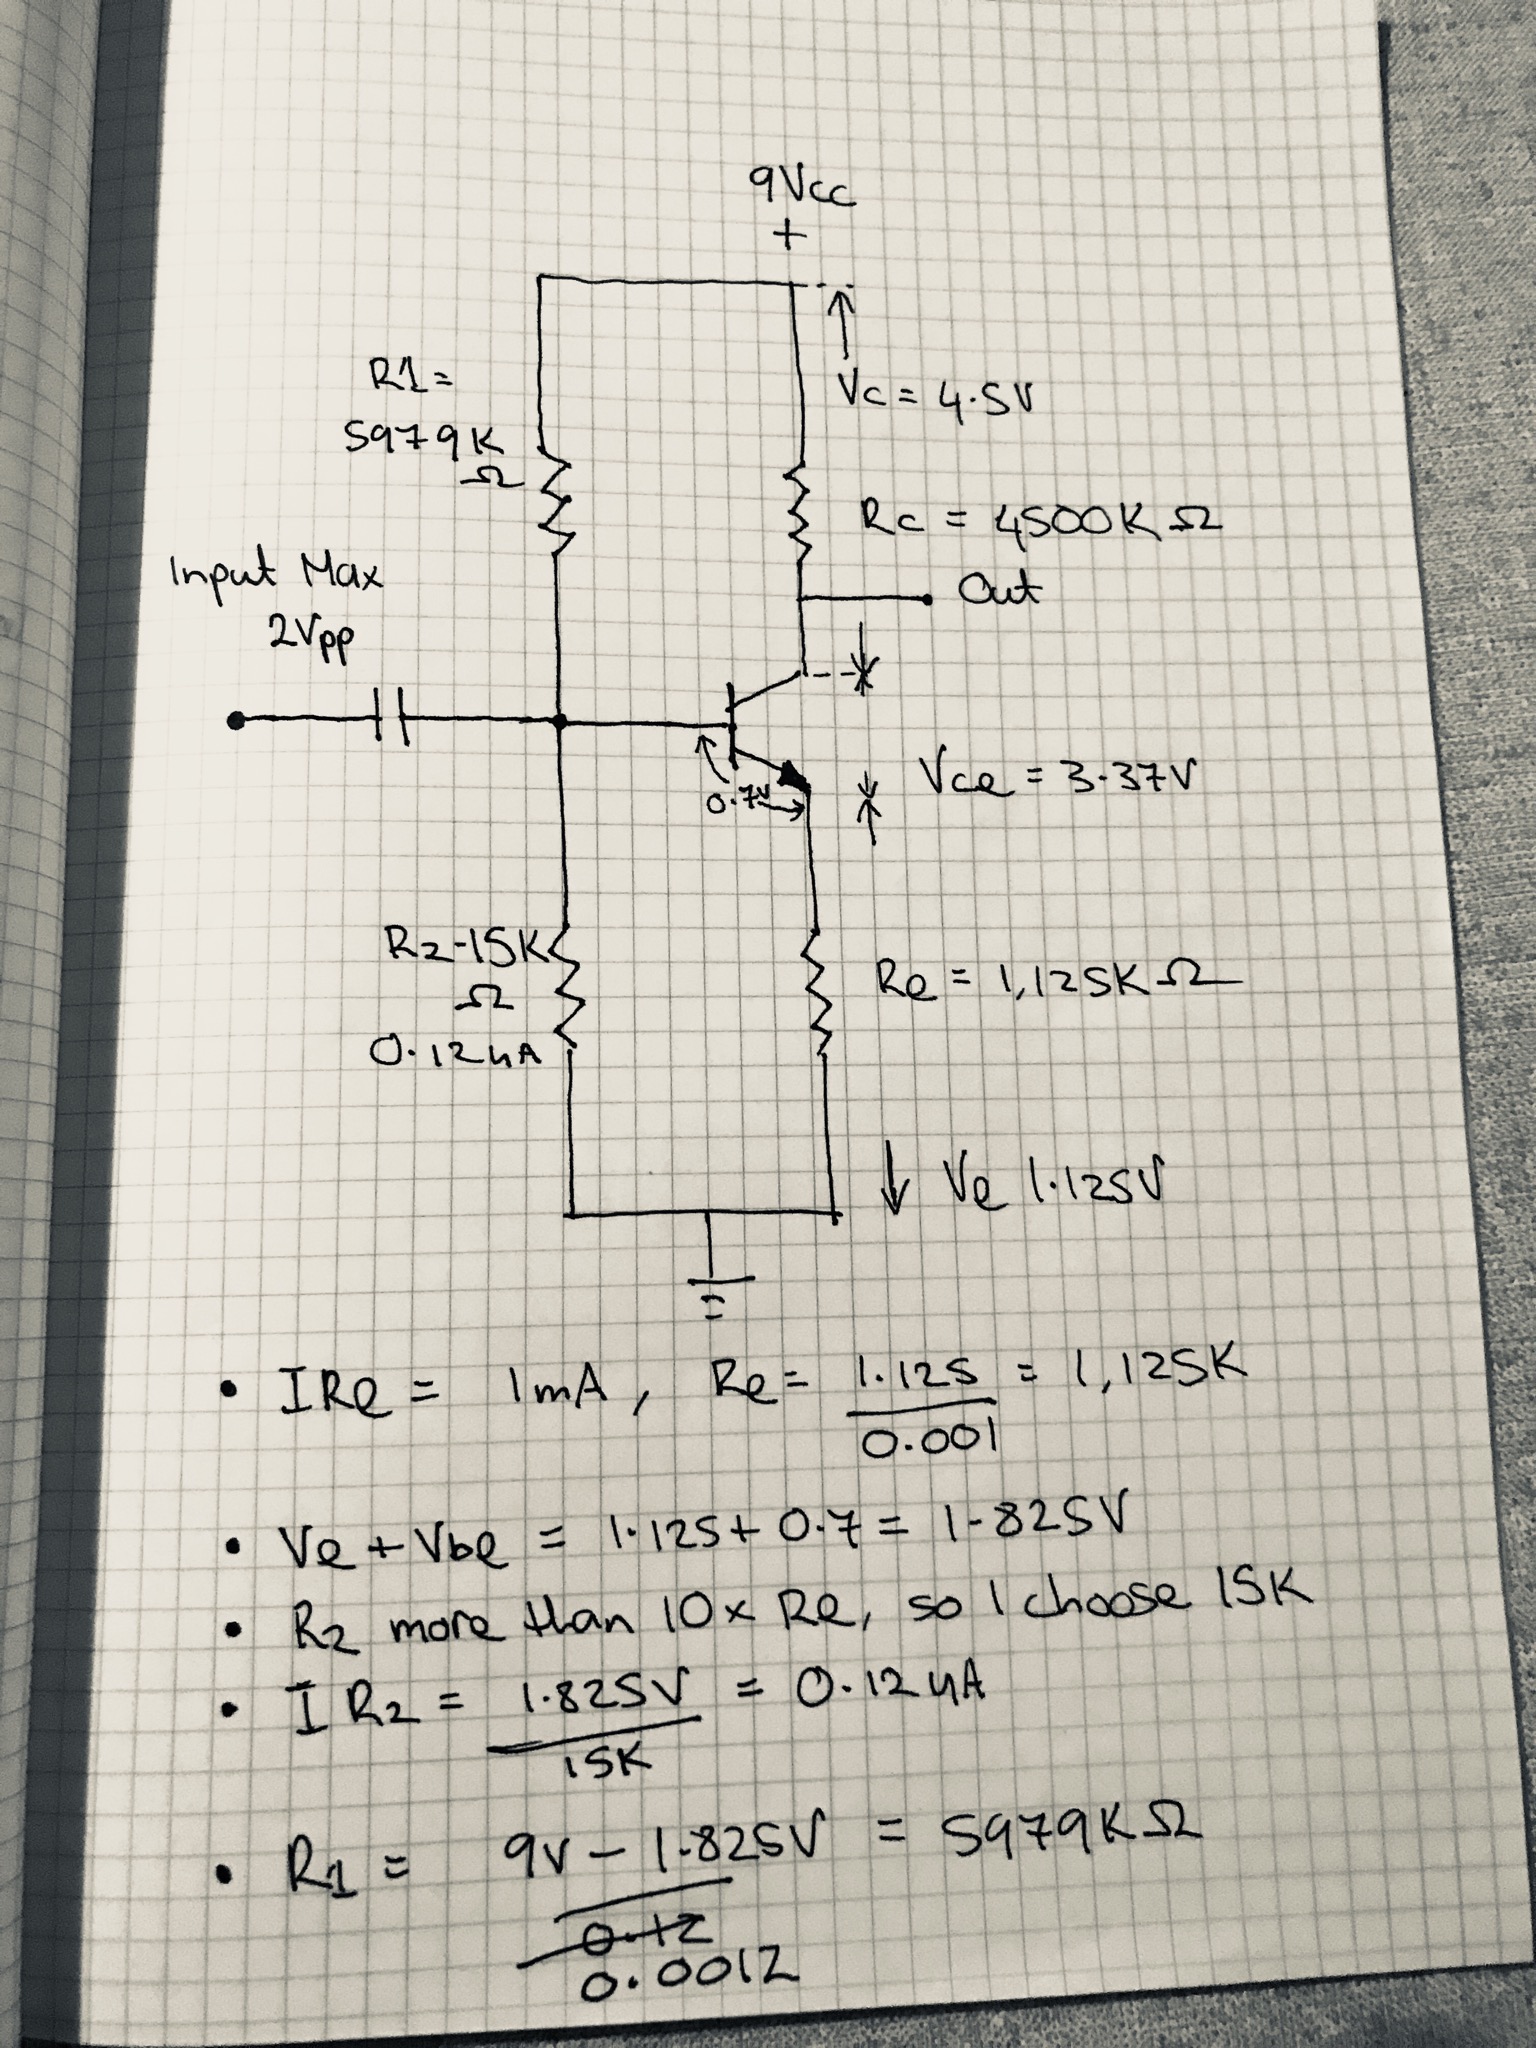 9Vcc
+
R1=
5979K
Ω
Vc = 4.5V
Rc = 4500KΩ
Input Max
2Vpp
Out
0.7V
Vce = 3.37V
R2-15K
Ω
0.12uA
Re = 1,125KΩ
Ve 1.125V
• IRe = 1mA, Re = 1.125 = 1,125K
0.001
• Ve + Vbe = 1.125 + 0.7 = 1.825V
• R2 more than 10x Re, so I choose 15K
• I R2 = 1.825V = 0.12uA
15K
• R1 = 9V - 1.825V = 5979KΩ
0.12
0.0012